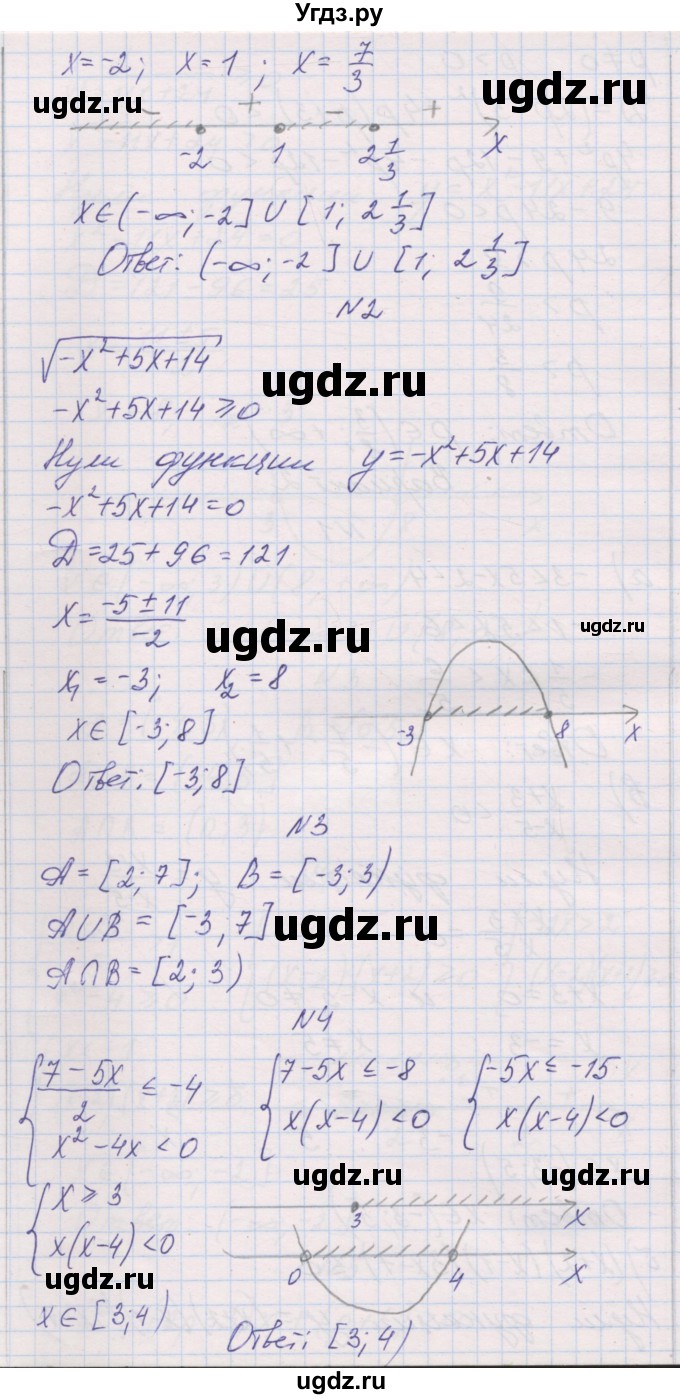 Угдз.ру
x=-2; x=1; x=7/3
ugdz.ru ugdz.ru
- + - +
-2 1 2 1/3 x
x∈(-∞;-2]∪[1; 2 1/3]
Ответ: (-∞;-2]∪[1; 2 1/3]
N2
√(-x²+5x+14)
ugdz.ru
-x²+5x+14≥0
Нули функции y=-x²+5x+14
-x²+5x+14=0
Д=25+96=121
x=(-5±11)/-2
ugdz.ru ugdz.ru
x₁=-3; x₂=8
-3 8 x
x∈[-3;8]
Ответ: [-3;8]
N3
A=[2;7]; B=[-3;3)
A∪B=[-3,7]
ugdz.ru
A∩B=[2;3)
N4
{(7-5x)/2≤-4 {7-5x≤-8 {-5x≤-15
x²-4x<0 x(x-4)<0 x(x-4)<0
ugdz.ru ugdz.ru
{x≥3
3 x
x(x-4)<0
0 4 x
ugdz.ru
x∈[3;4)
Ответ: [3;4)
ugdz.ru